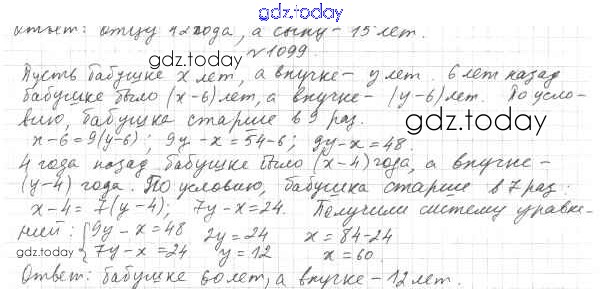 gdz.today
ответ: отцу 42 года, а сыну - 15 лет.
gdz.today
№1099.
Пусть бабушке x лет, а внучке - y лет. 6 лет назад
бабушке было (x-6) лет, а внучке - (y-6) лет. По усло-
вию, бабушка старше в 9 раз.
gdz.today
x-6=9(y-6); 9y-x=54-6; 9y-x=48.
4 года назад бабушке было (x-4) года, а внучке -
(y-4) года. По условию, бабушка старше в 7 раз:
x-4=7(y-4); 7y-x=24. Получили систему уравне-
ний: {9y-x=48 2y=24 x=84-24
{7y-x=24 y=12 x=60.
gdz.today
Ответ: бабушке 60 лет, а внучке - 12 лет.
gdz.today